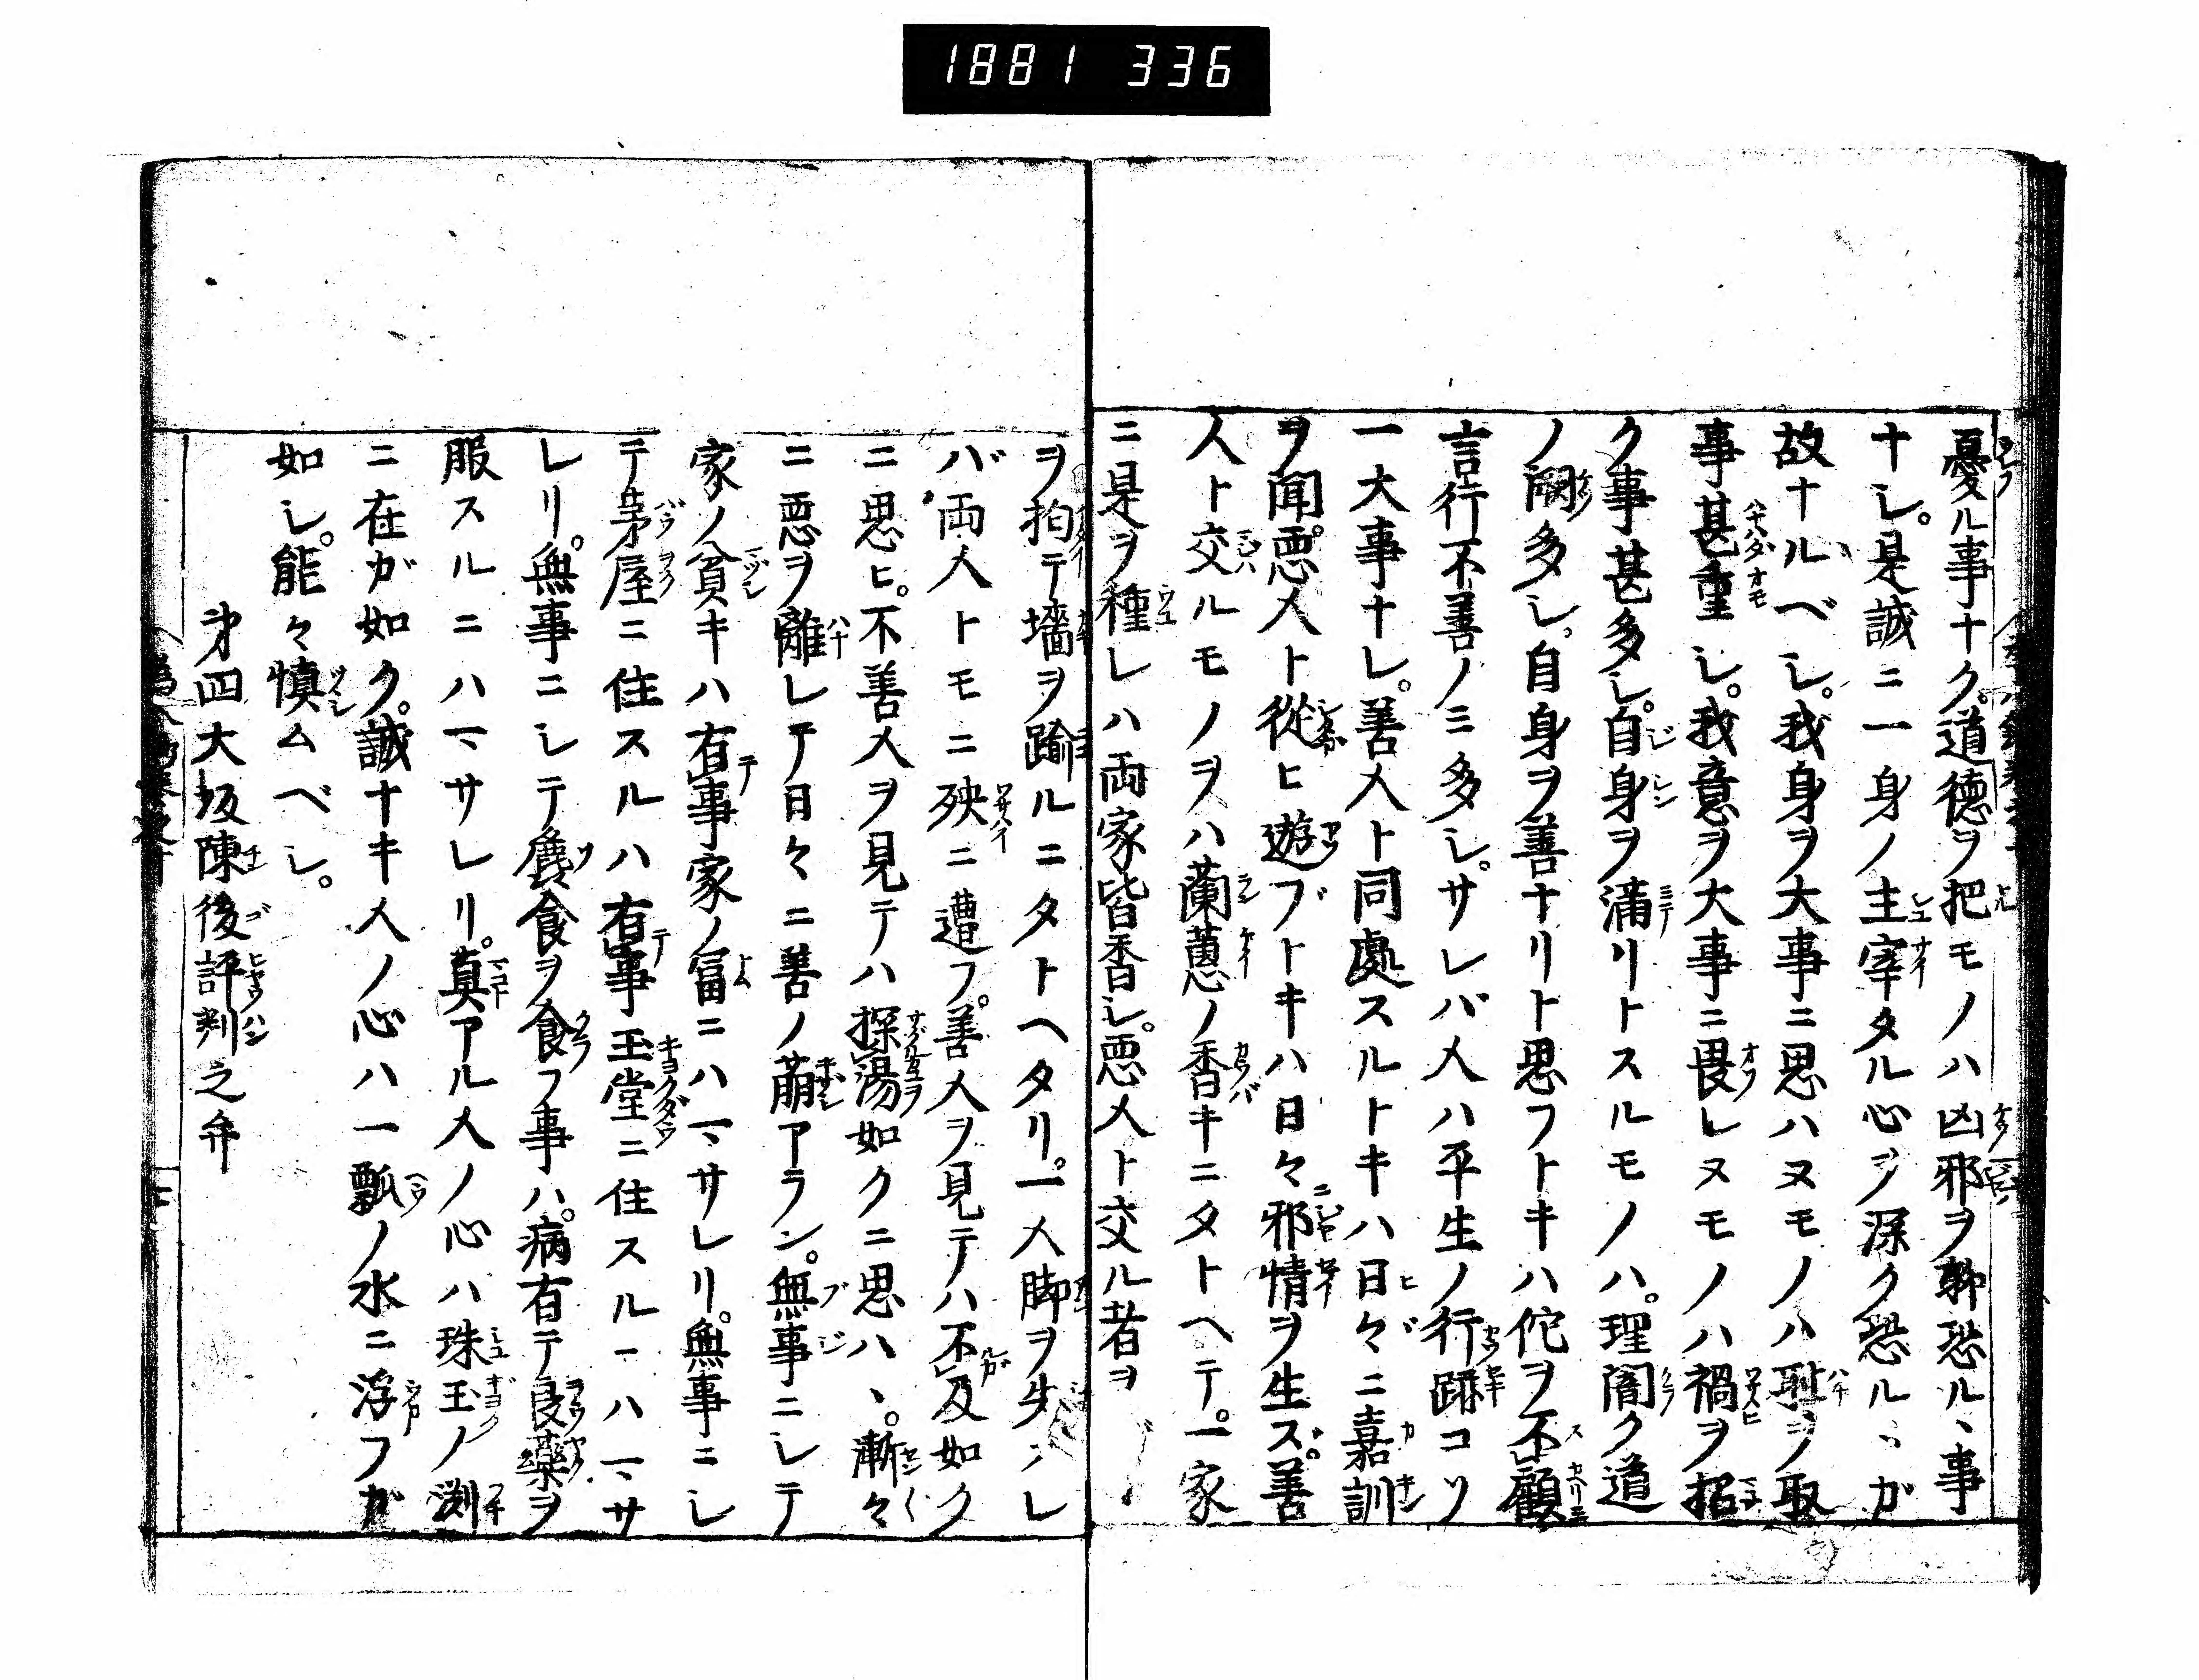 1881 336
憂ル事ナク。道徳ヲ把モノハ凶邪ヲ斡恐ル、事
ナシ。是誠ニ一身ノ主宰タル心ヲ深ク恐ル、ガ
故ナルベシ。我身ヲ大事ニ思ハヌモノハ恥ヲ取
事甚重シ。我意ヲ大事ニ畏レヌモノハ禍ヲ招
ク事甚多シ。自身ヲ満リトスルモノハ。理闇ク道
ノ闕多シ。自身ヲ善ナリト思フトキハ佗ヲ不顧
言行不善ノミ多シ。サレバ人ハ平生ノ行跡コソ
一大事ナレ。善人ト同處スルトキハ日々ニ嘉訓
ヲ聞。悪人ト從ヒ遊ブトキハ日々邪情ヲ生ズ。善
人ト交ルモノヲハ蘭蕙ノ香キニタトヘテ。一家
ニ是ヲ種レハ両家皆香シ。悪人ト交ル者ヲ
ヲ抱テ墻ヲ踰ルニタトヘタリ。一人脚ヲ失ハレ
バ両人トモニ殃ニ遭フ。善人ヲ見テハ不及如ク
ニ思ヒ。不善人ヲ見テハ探湯如クニ思ハヽ。漸々
ニ悪ヲ離レテ日々ニ善ノ萠アラン。無事ニシテ
家ノ貧キハ有事家ノ冨ニハマサレリ。無事ニシ
テ茅屋ニ住スルハ有事玉堂ニ住スルニハマサ
レリ。無事ニシテ麁食ヲ食フ事ハ。病有テ良藥ヲ
服スルニハマサレリ。真アル人ノ心ハ珠玉ノ渕
ニ在ガ如ク。誠ナキ人ノ心ハ一瓢ノ水ニ浮フガ
如シ。能々慎ムベシ。
第四大坂陳後評判之弁